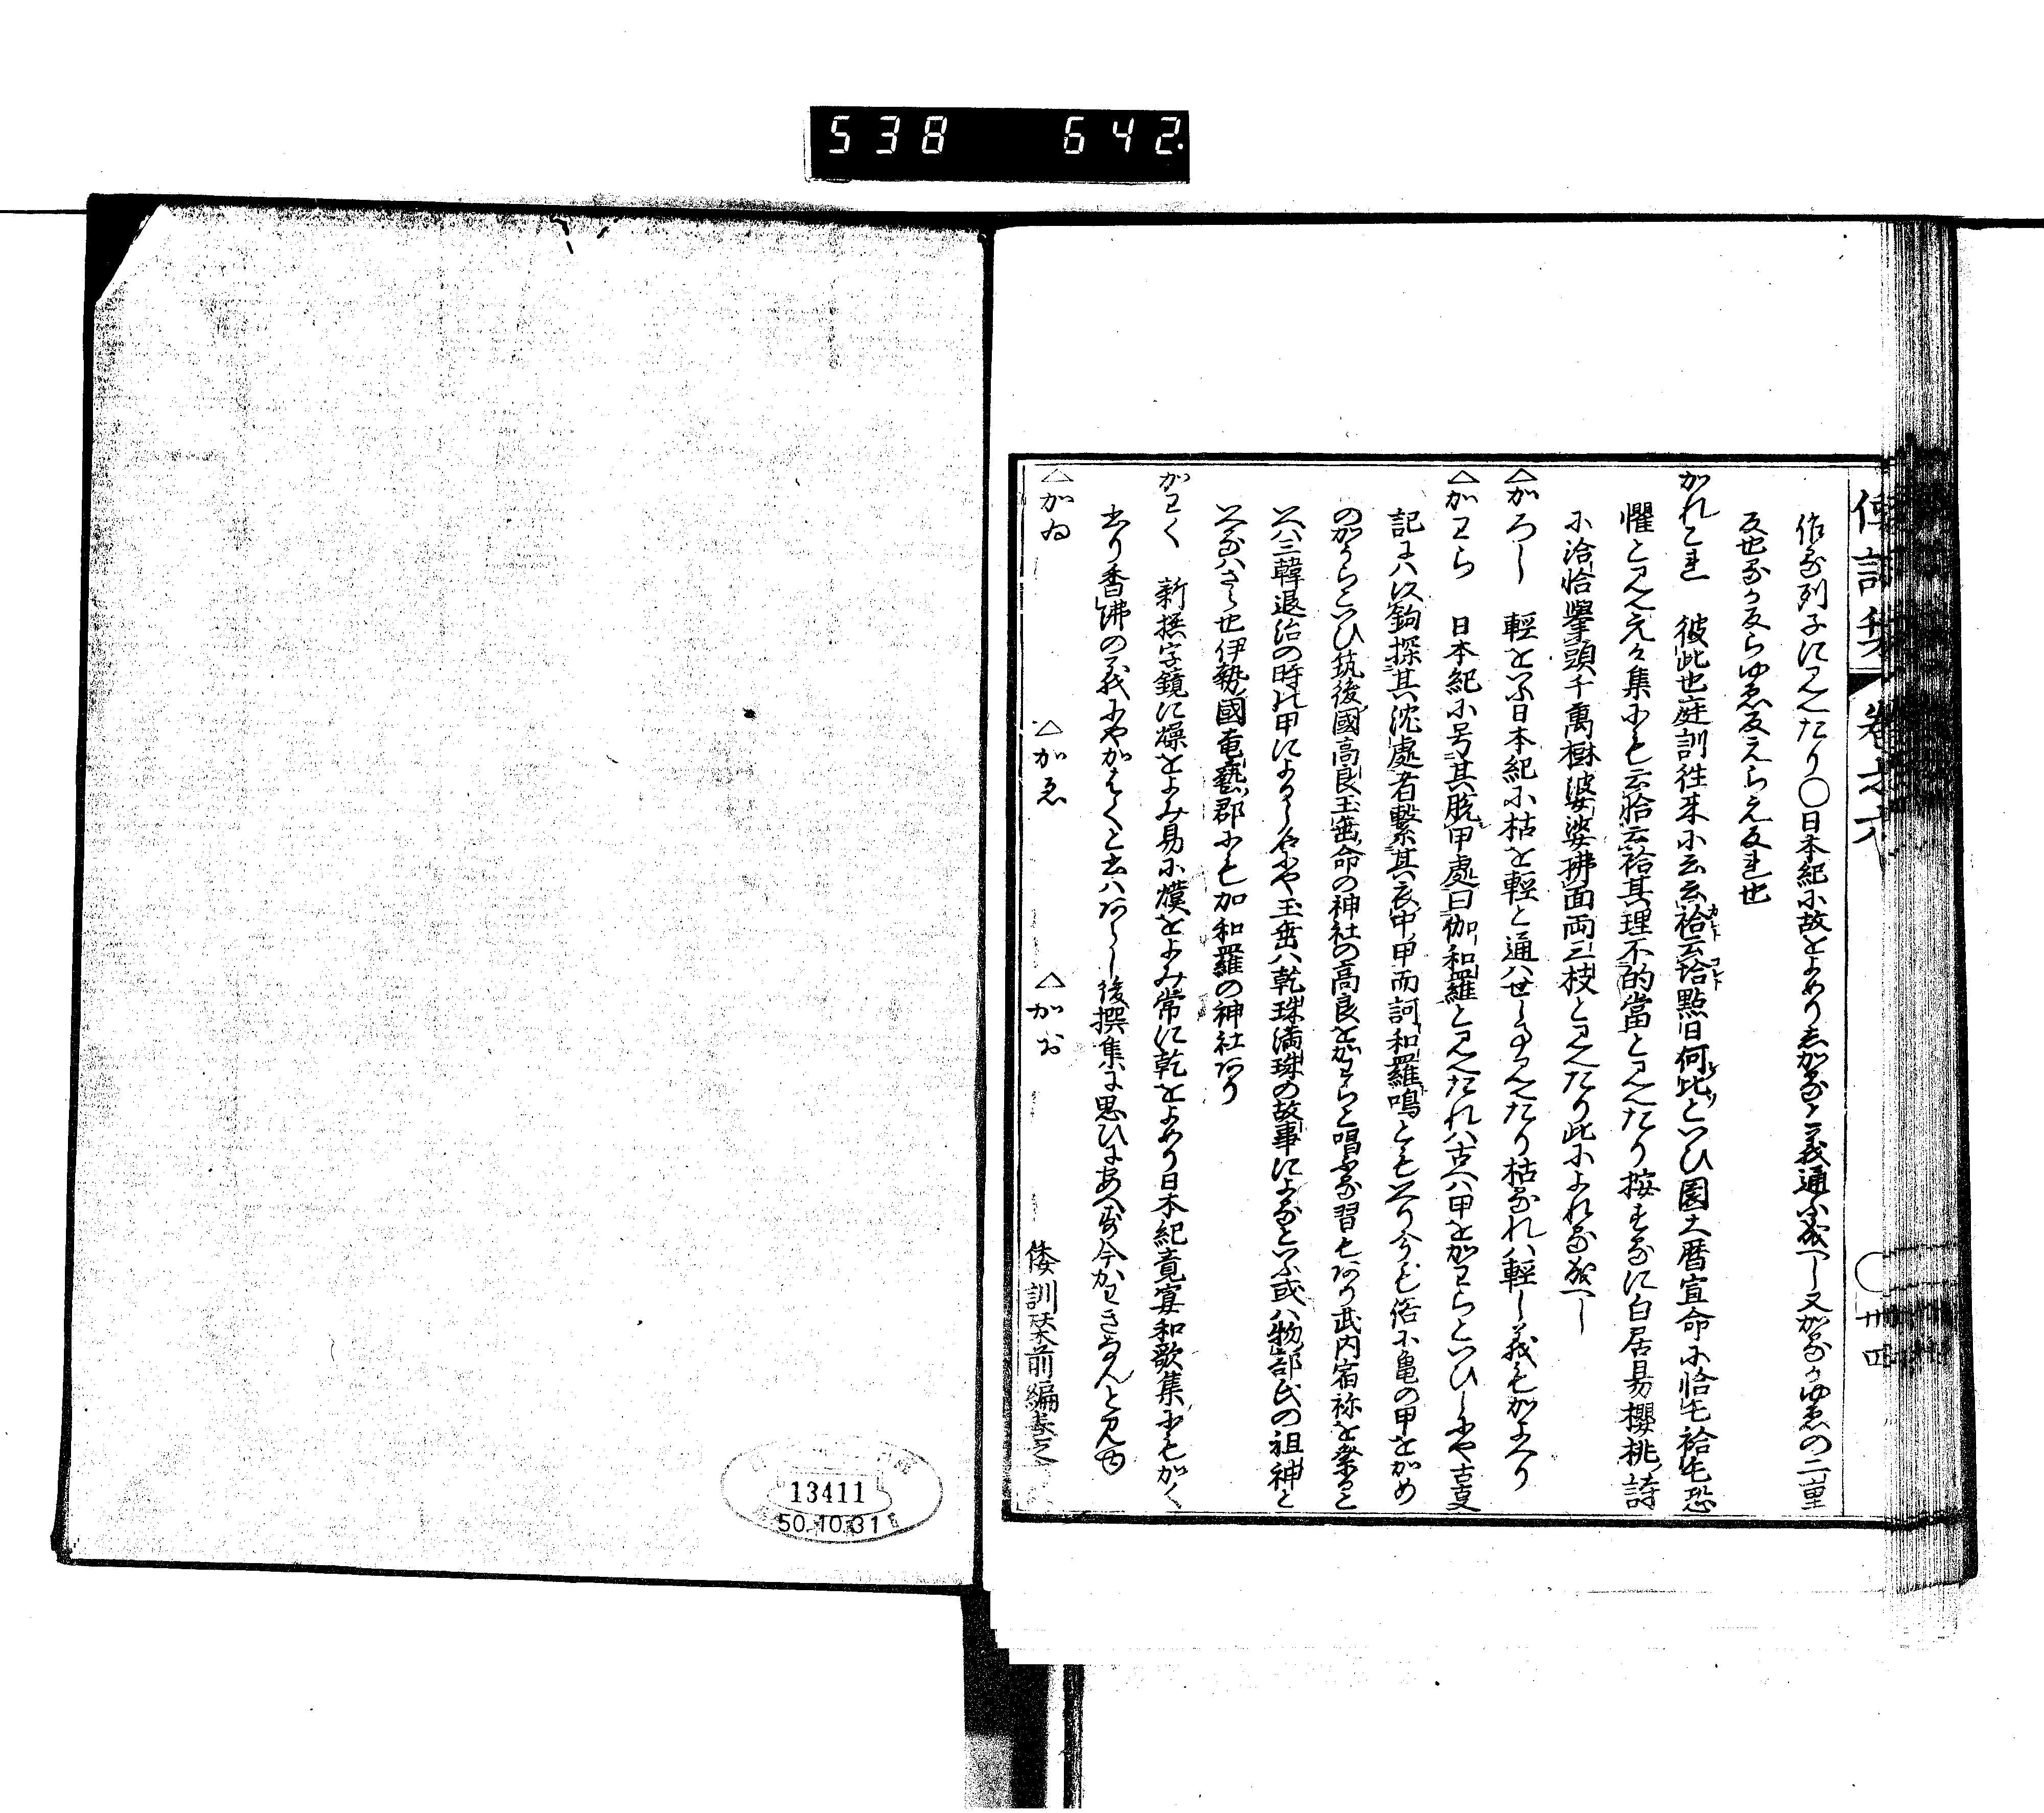 538 642.
倭訓栞 卷之六 〇卅四
作る列子に見えたり〇日本紀に故をよめり志かると義通ふ成へし又かるかゆゑの二重
反也るか反らゆゑ反えらえ反れ也
かれこれ 彼此也庭訓往来に云云祫云恰點曰何比といひ園太暦宣命に恰毛祫毛恐
懼と見え元々集にも云恰云祫其理不的當と見えたり按するに白居易櫻桃詩
に洽恰擧頭千萬樹婆娑拂面両三枝と見えたり此によれる成へし
△かろし 輕をいふ日本紀に枯を輕と通ハせし事見えたり枯るれハ輕し義もかよへり
△かわら 日本紀に号其脱甲處曰伽和羅と見えたれハ古へハ甲をかわらといひしにや古事
記にハ以鉤探其沈處者繋其衣中甲而訶和羅鳴ともいへり今も俗に亀の甲をかめ
のかうらといひ筑後國高良玉垂命の神社の高良をかわらと唱ふる習もあり武内宿祢を祭ると
いへハ三韓退治の時の甲によりし名にや玉垂ハ乾珠満珠の故事によるといふ或ハ物部氏の祖神と
いふハさら也伊勢國奄藝郡にも加和羅の神社あり
かわく 新撰字鏡に燥をよみ易に熯をよみ常に乾をよめり日本紀竟宴和歌集にもかく
出り香沸の義にやかはくと書ハあしし後撰集に思ひにあへす今かわきなんと見ゆ
△かゐ △かゑ △かお 倭訓栞前編卷之
13411
50.10.31